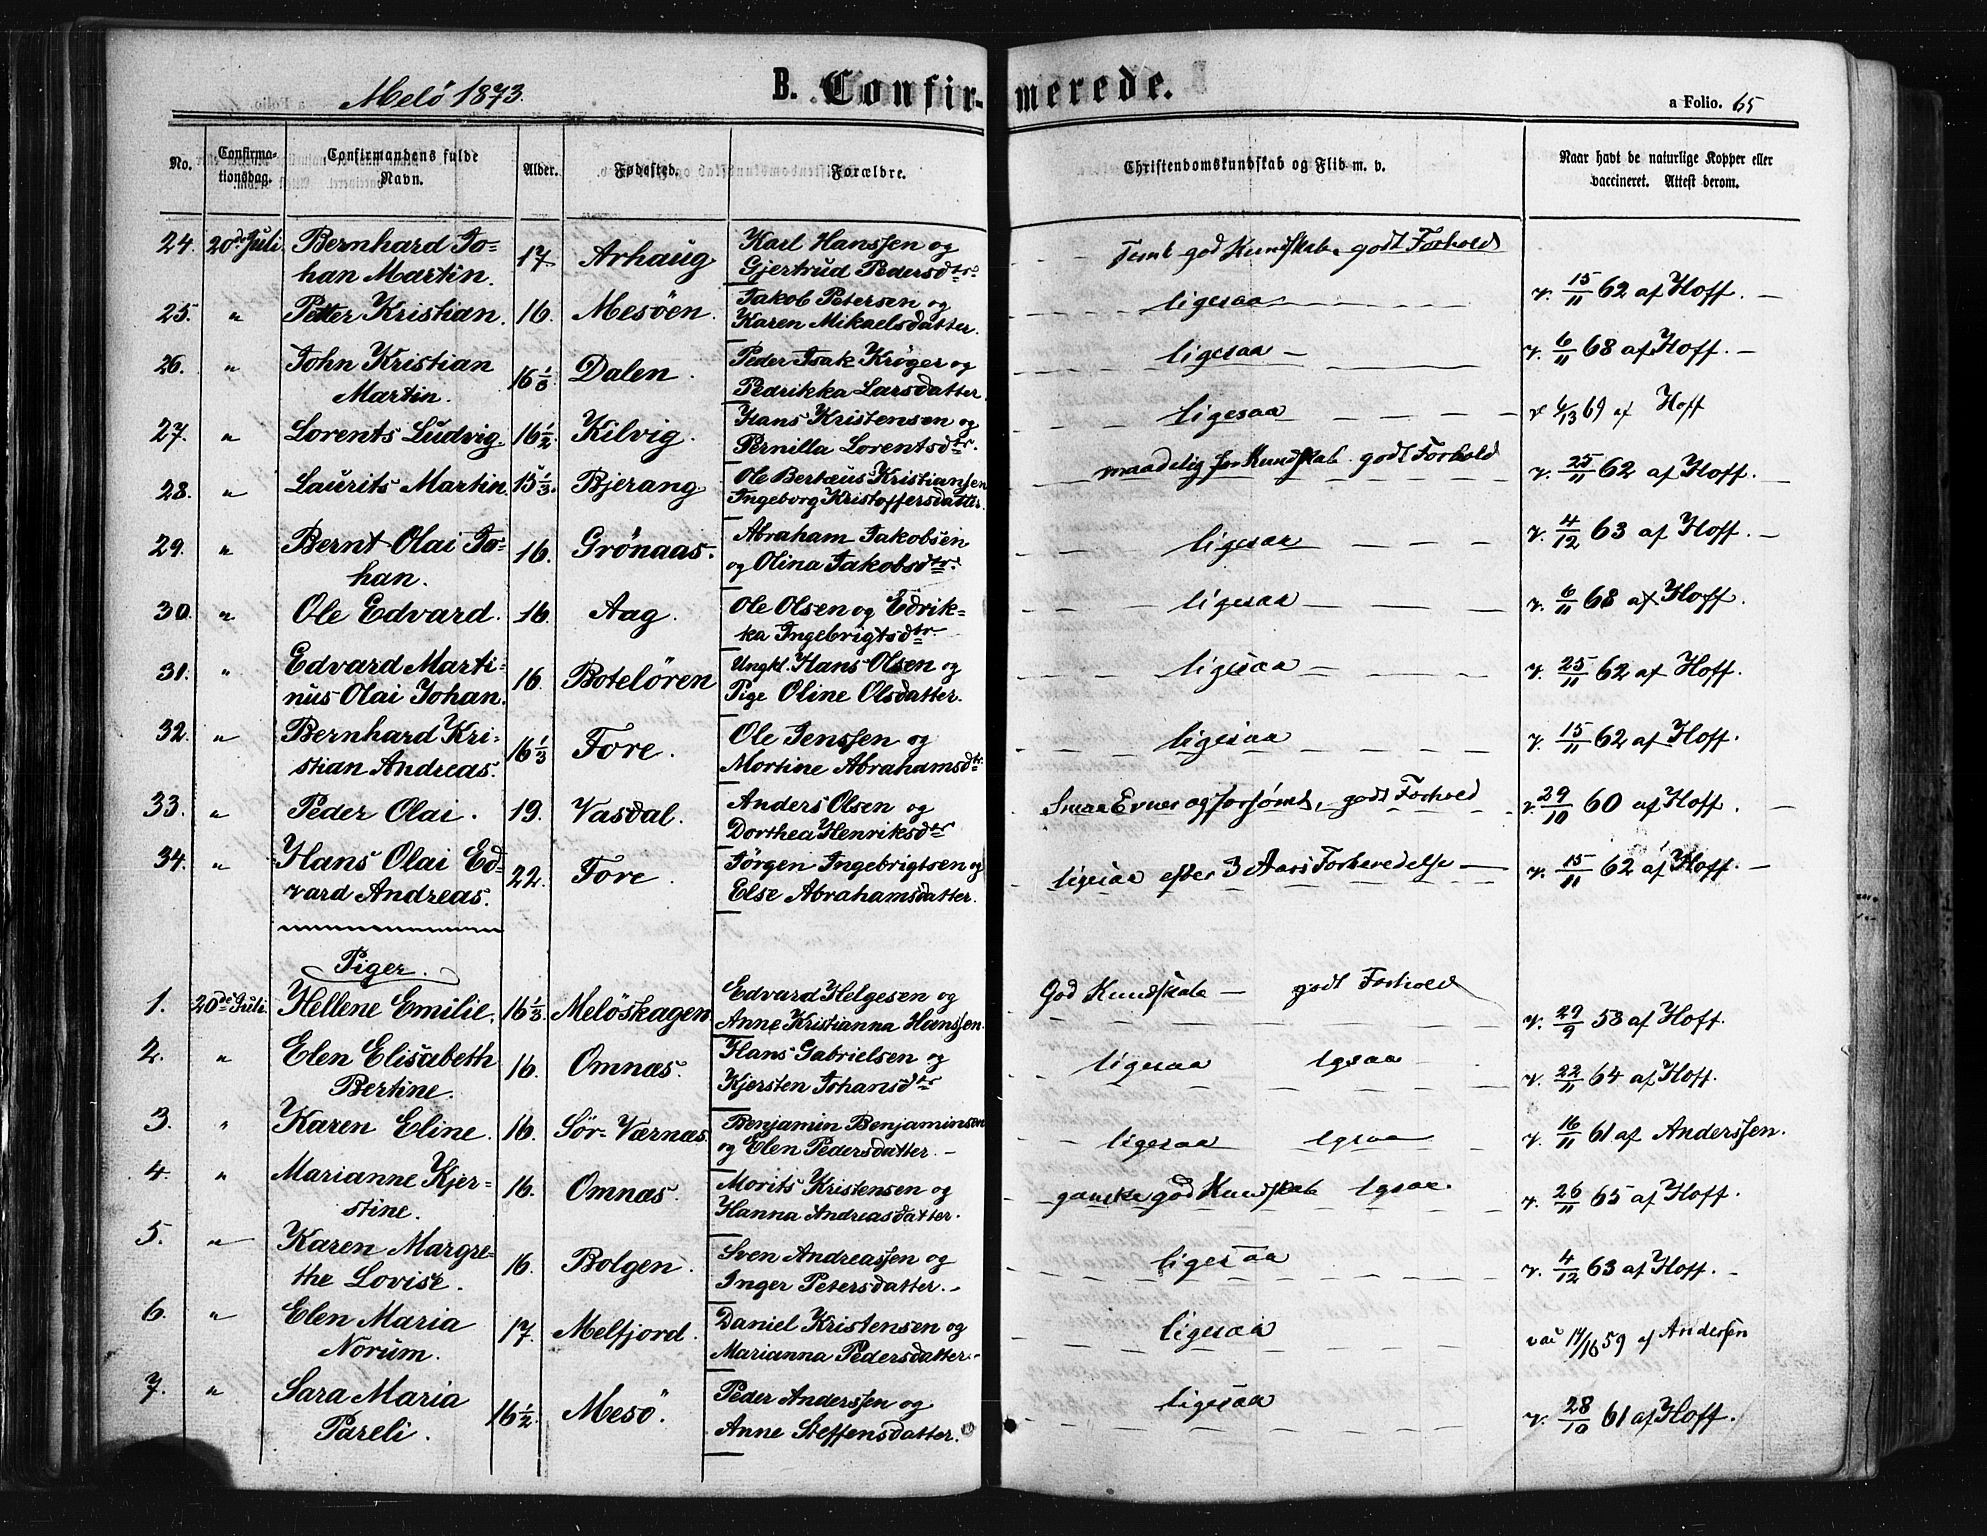 Melö 1873.
B. Confirmerede.
a Folio. 65
No. Confirmationsdag. Confirmandens fulde Navn. Alder. Fødested. Forældre. Christendomskundskab og Flid m. v. Naar havt de naturlige Kopper eller vaccineret. Attest derom.
24. 20de Juli. Bernhard Johan Martin. 17 Arhaug Karl Hanssen og Gjertrud Pedersdtr. Temt god Kundskab, godt Forhold v. 15/11 62 af Hoff. —
25. " Petter Kristian. 16. Mesöen. Jakob Petersen og Karen Mikaelsdatter. ligesaa v. 6/11 68 af Hoff. —
26. " John Kristian Martin. Dalen. Peder Isak Kröger og Pedrikka Larsdatter. ligesaa — v 6/13 69 af Hoff
27. " Lorents Ludvig. 16 1/2. Kilvig. Hans Kristensen og Pernilla Lorentsdtr. ligesaa v. 25/11 62 af Hoff.
28. " Laurits Martin. 15 1/3. Bjerang. Ole Bertæus Kristiansen Ingeborg Kristoffersdatter. maadelig Kundskab godt Forhold v. 4/12 63 af Hoff. —
29. " Bernt Olai Johan. 16. Grönaas. Abraham Jakobsen og Olina Jakobsdtr. ligesaa v. 6/11 68 af Hoff.
30. " Ole Edvard. 16. Aag. Ole Olsen og Edrikka Ingebrigtsdtr. ligesaa v. 25/11 62 af Hoff.
31. " Edvard Martinus Olai Johan. 16. Botelören Ungkl. Hans Olsen og Pige Oline Olsdatter. ligesaa — v. 15/11 62 af Hoff.
32. " Bernhard Kristian Andreas. 16 1/3 Fore. Ole Jenssen og Mortine Abrahamsdtr ligesaa
33. " Peder Olai. 19. Vasdal. Anders Olsen og Dorthea Henriksdtr Smaa Evner og forsømt, godt Forhold v. 29/10 60 af Hoff. —
34. " Hans Olai Edvard Andreas. 22. Fore. Jörgen Ingebrigtsen og Else Abrahamsdatter. ligesaa efter 3 Aars Forberedelse — v. 15/11 62 af Hoff. —
Piger.
1. 20de Juli. Hellene Emilie. 16 1/3 Melöskagen Edvard Helgesen og Anne Kristianna Hanssen. God Kundskab — godt Forhold v. 29/9 58 af Hoff.
2. " Elen Elisabeth Bertine. 16. Omnæs. Hans Gabrielsen og Kjersten Johansdtr ligesaa lgsaa v. 22/11 64 af Hoff.
3. " Karen Eline. 16. Sör-Værnæs. Benjamin Benjaminsen og Elen Pedersdatter. — ligesaa lgsaa v. 16/11 61 af Anderssen.
4. " Marianne Kjerstine. 16. Omnæs. Morits Kristensen og Hanna Andreasdatter. ganske god Kundskab lgsaa. v. 26/11 65 af Hoff.
5. " Karen Margrethe Lovise. 16. Bolgen. Sven Andreassen og Inger Petersdatter. — ligesaa v. 4/12 63 af Hoff. —
6. " Elen Maria Norum. 17. Melfjord. Daniel Kristensen og Marianna Pedersdatter — ligesaa 59 af Anderssen
7. " Sara Maria Pareli. 16 1/2. Mesö. Peder Anderssen og Anne Steffensdatter. ligesaa v. 28/10 61 af Hoff.